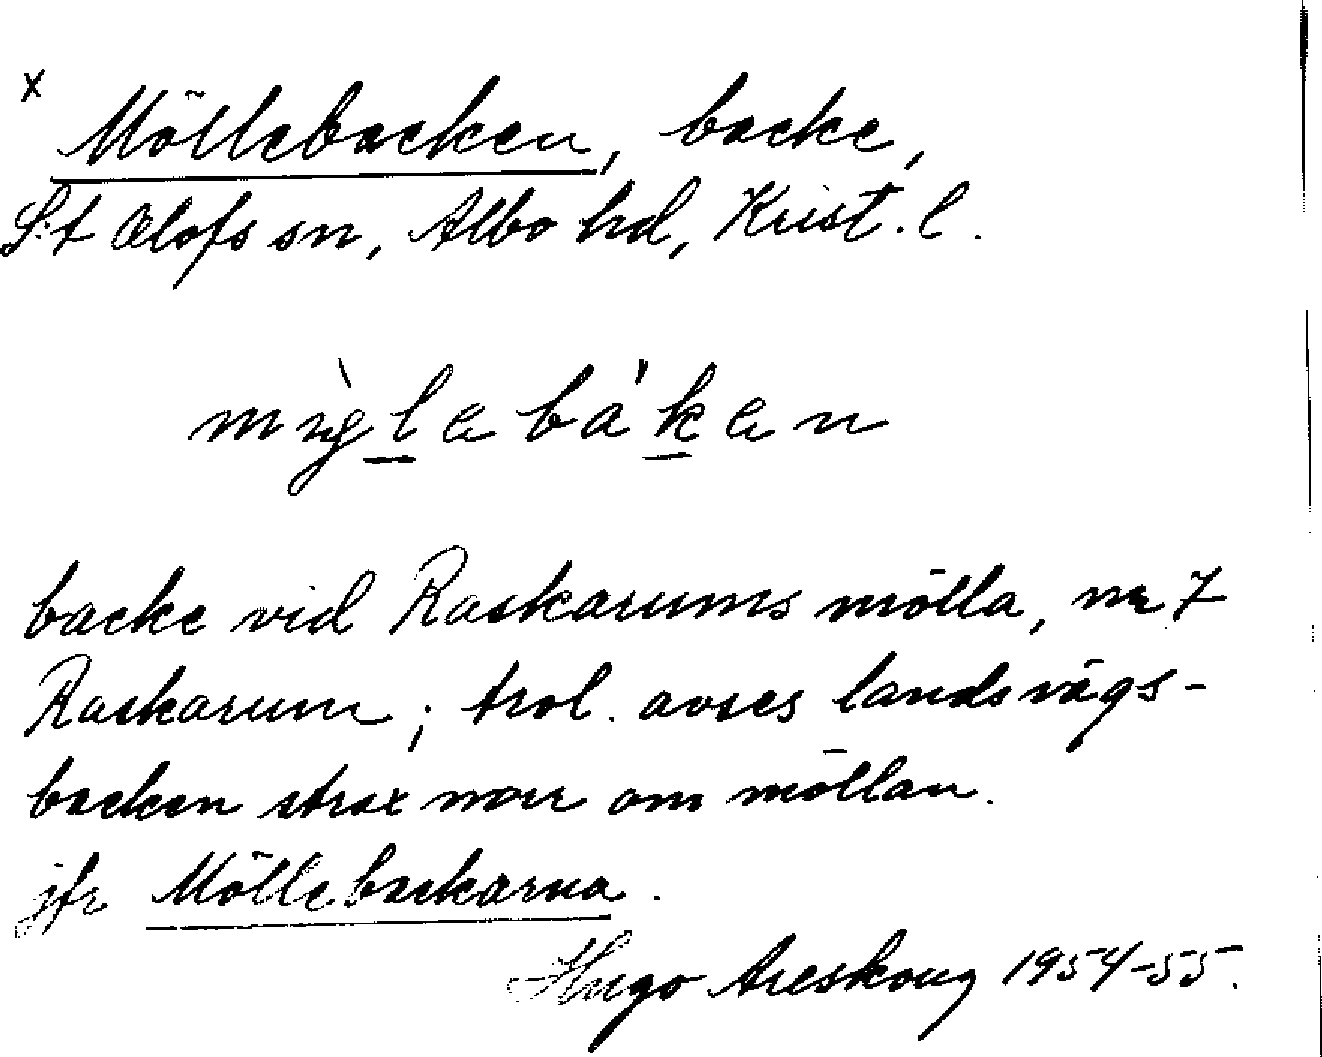 x Möllebacken, backe,
St Olofs sn, Albo hd, Krist. l.
backe vid Raskarums mölla, nr 7
Raskarum; trol. avses landsvägs-
backen strax norr om möllan.
jfr Möllebackarna.
Hugo Areskoug 1954-55.